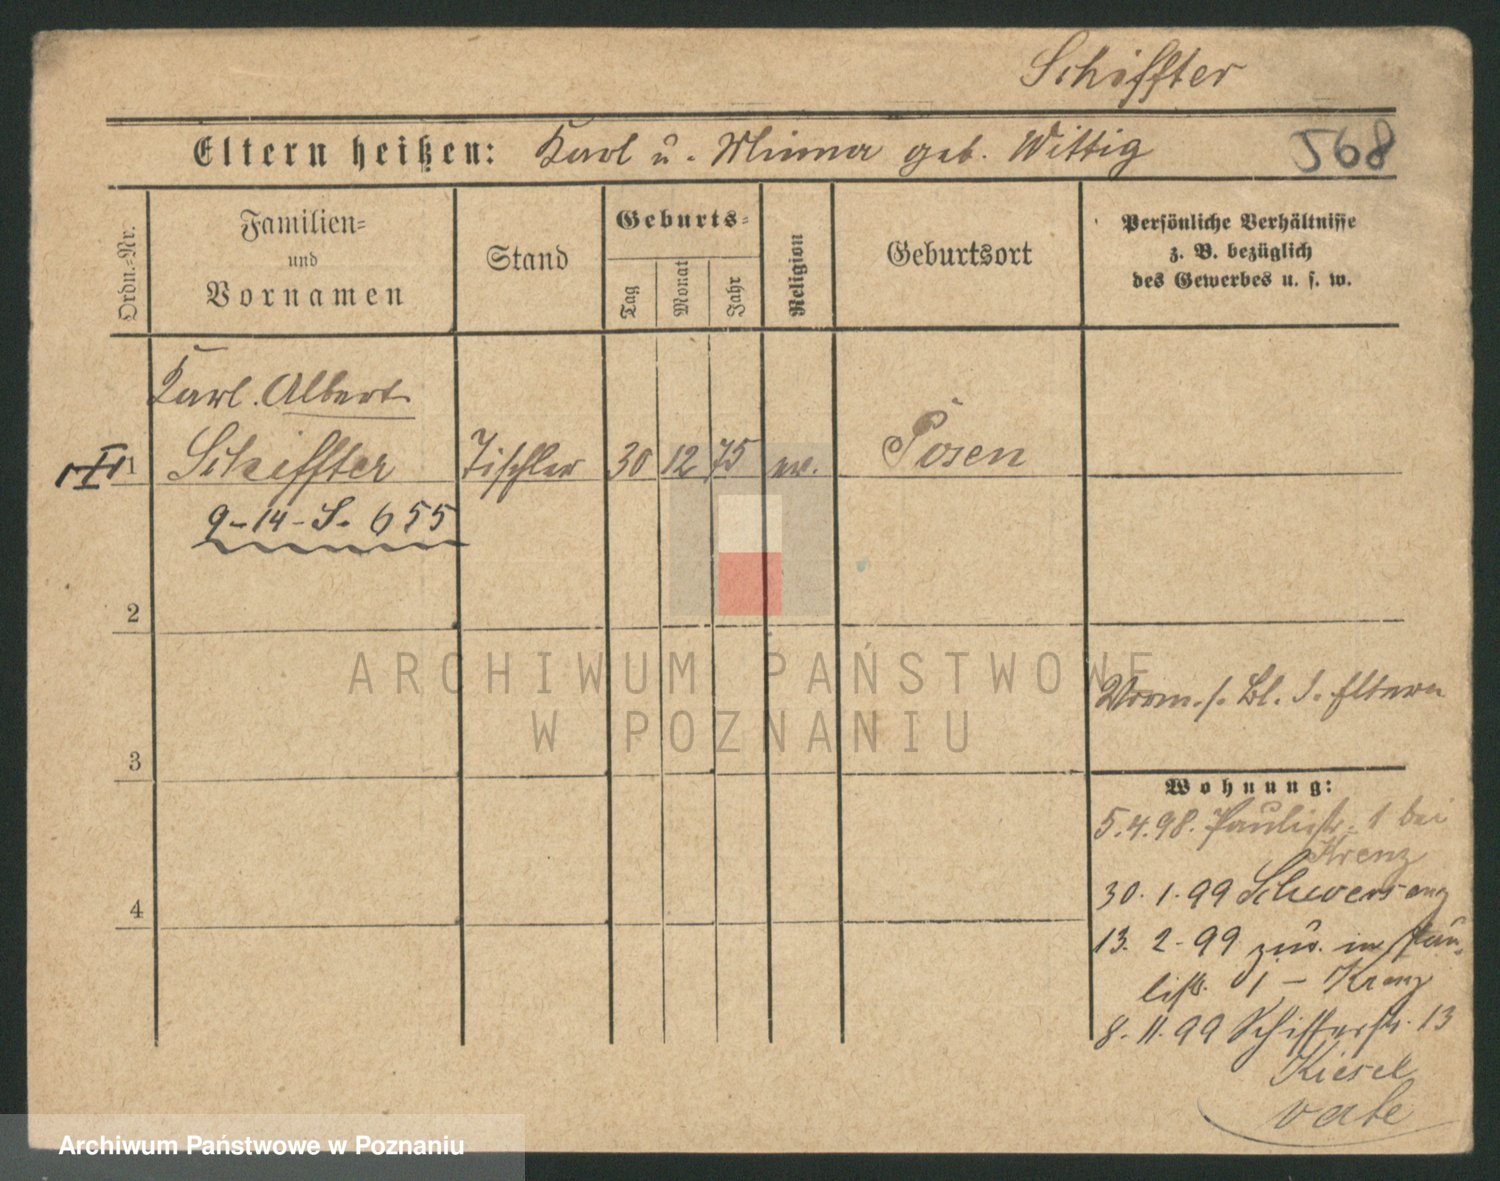 Schiffter
Eltern heißen: Karl u. Minna geb. Wittig 568
Ordn.=Nr.
Familien=
und
Vornamen
Stand
Geburts=
Tag
Monat
Jahr
Religion
Geburtsort
Persönliche Verhältnisse
z. B. bezüglich
des Gewerbes u. s. w.
Karl. Albert
1 Schiffter Tischler 30 12 75 ev. Posen
9-14-S. 655
2
ARCHIWUM PAŃSTWOWE
W POZNANIU
Eltern
3
Wohnung:
5.4.98. Paulistr. 1 bei
Krenz
30.1.99 Schwersenz
4
13. 2-99 zur. in Pau-
listr. 1 - Krenz
8.11.99 Schifferstr. 13
Kiesel
Archiwum Państwowe w Poznaniu